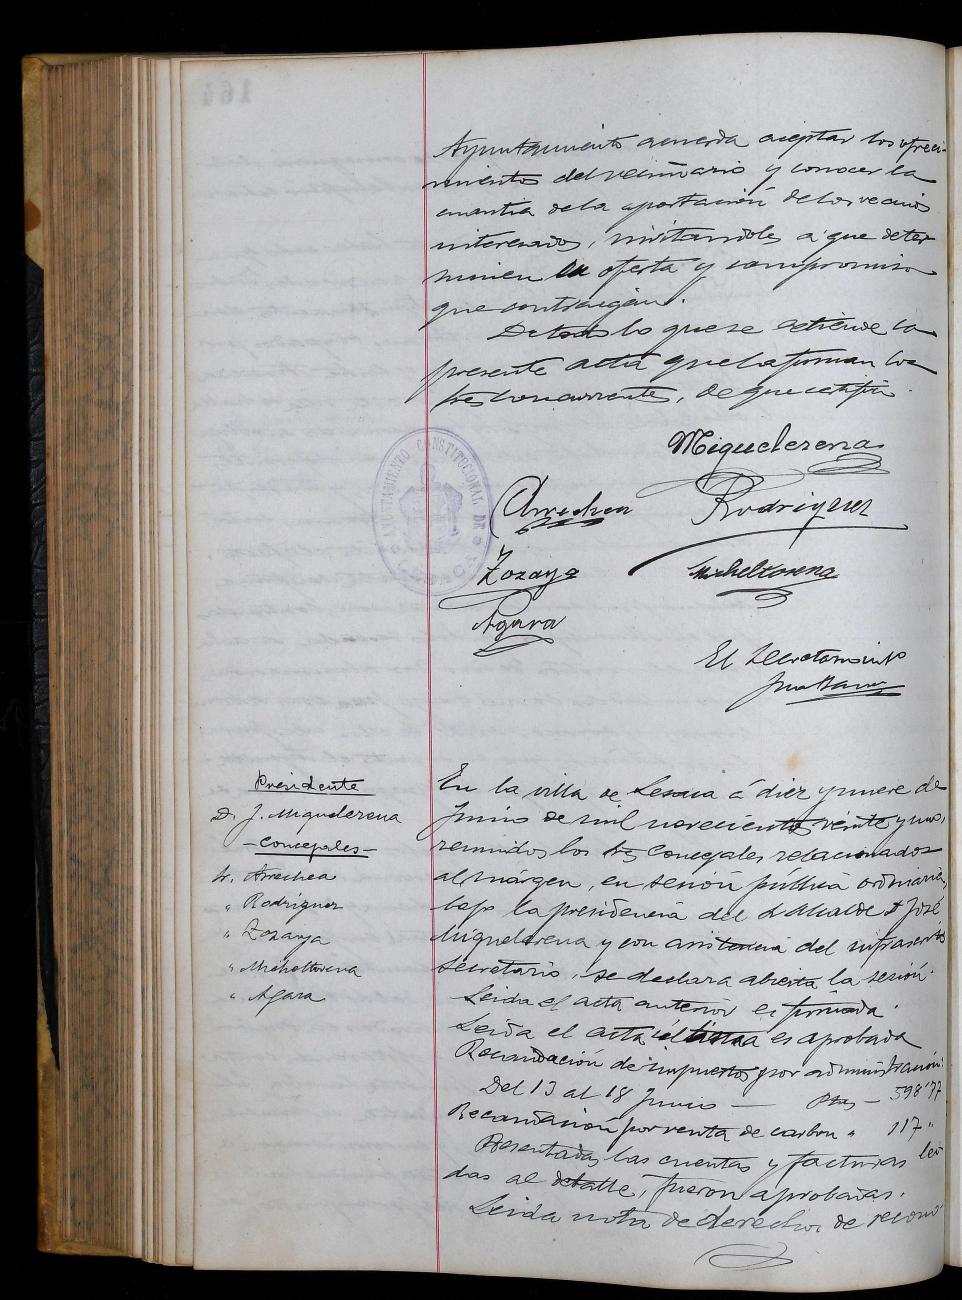 Ayuntamiento acuerda aceptar los ofreci-
mientos del vecindario y conocer la
cuantía de la aportación de los vecinos
interesados, invitandoles a que deter
minen la oferta y compromiso
que contraigan.
De todo lo que se extiende la
presente acta que la firman los
Sres concurrentes, de que certifico
Miquelerena
Arrechea Rodriguez
Zozaya Micheltorena
Agara
El Secretario
AYUNTAMIENTO CONSTITUCIONAL DE
Presidente
D. J. Miquelerena
- Concejales -
Sr. Arrechea
" Rodriguez
" Zozaya
" Micheltorena
" Agara
En la villa de Lesaca á diez y nueve de
Junio de mil novecientos veinte y uno,
reunidos los Sres Concejales relacionados
al márgen, en sesión pública ordinaria,
bajo la presidencia del Sr Alcalde D José
Miquelerena y con asistencia del infrascrito
secretario, se declara abierta la sesión.
Leida el acta anterior es firmada.
Leida el acta última es aprobada
Recaudación de impuestos por administración:
Del 13 al 18 Junio — Ptas — 598'77
Recaudación por venta de carbon " 117 "
Presentadas las cuentas y facturas lei
das al detalle, fueron aprobadas.
Leida nota de derechos de recono